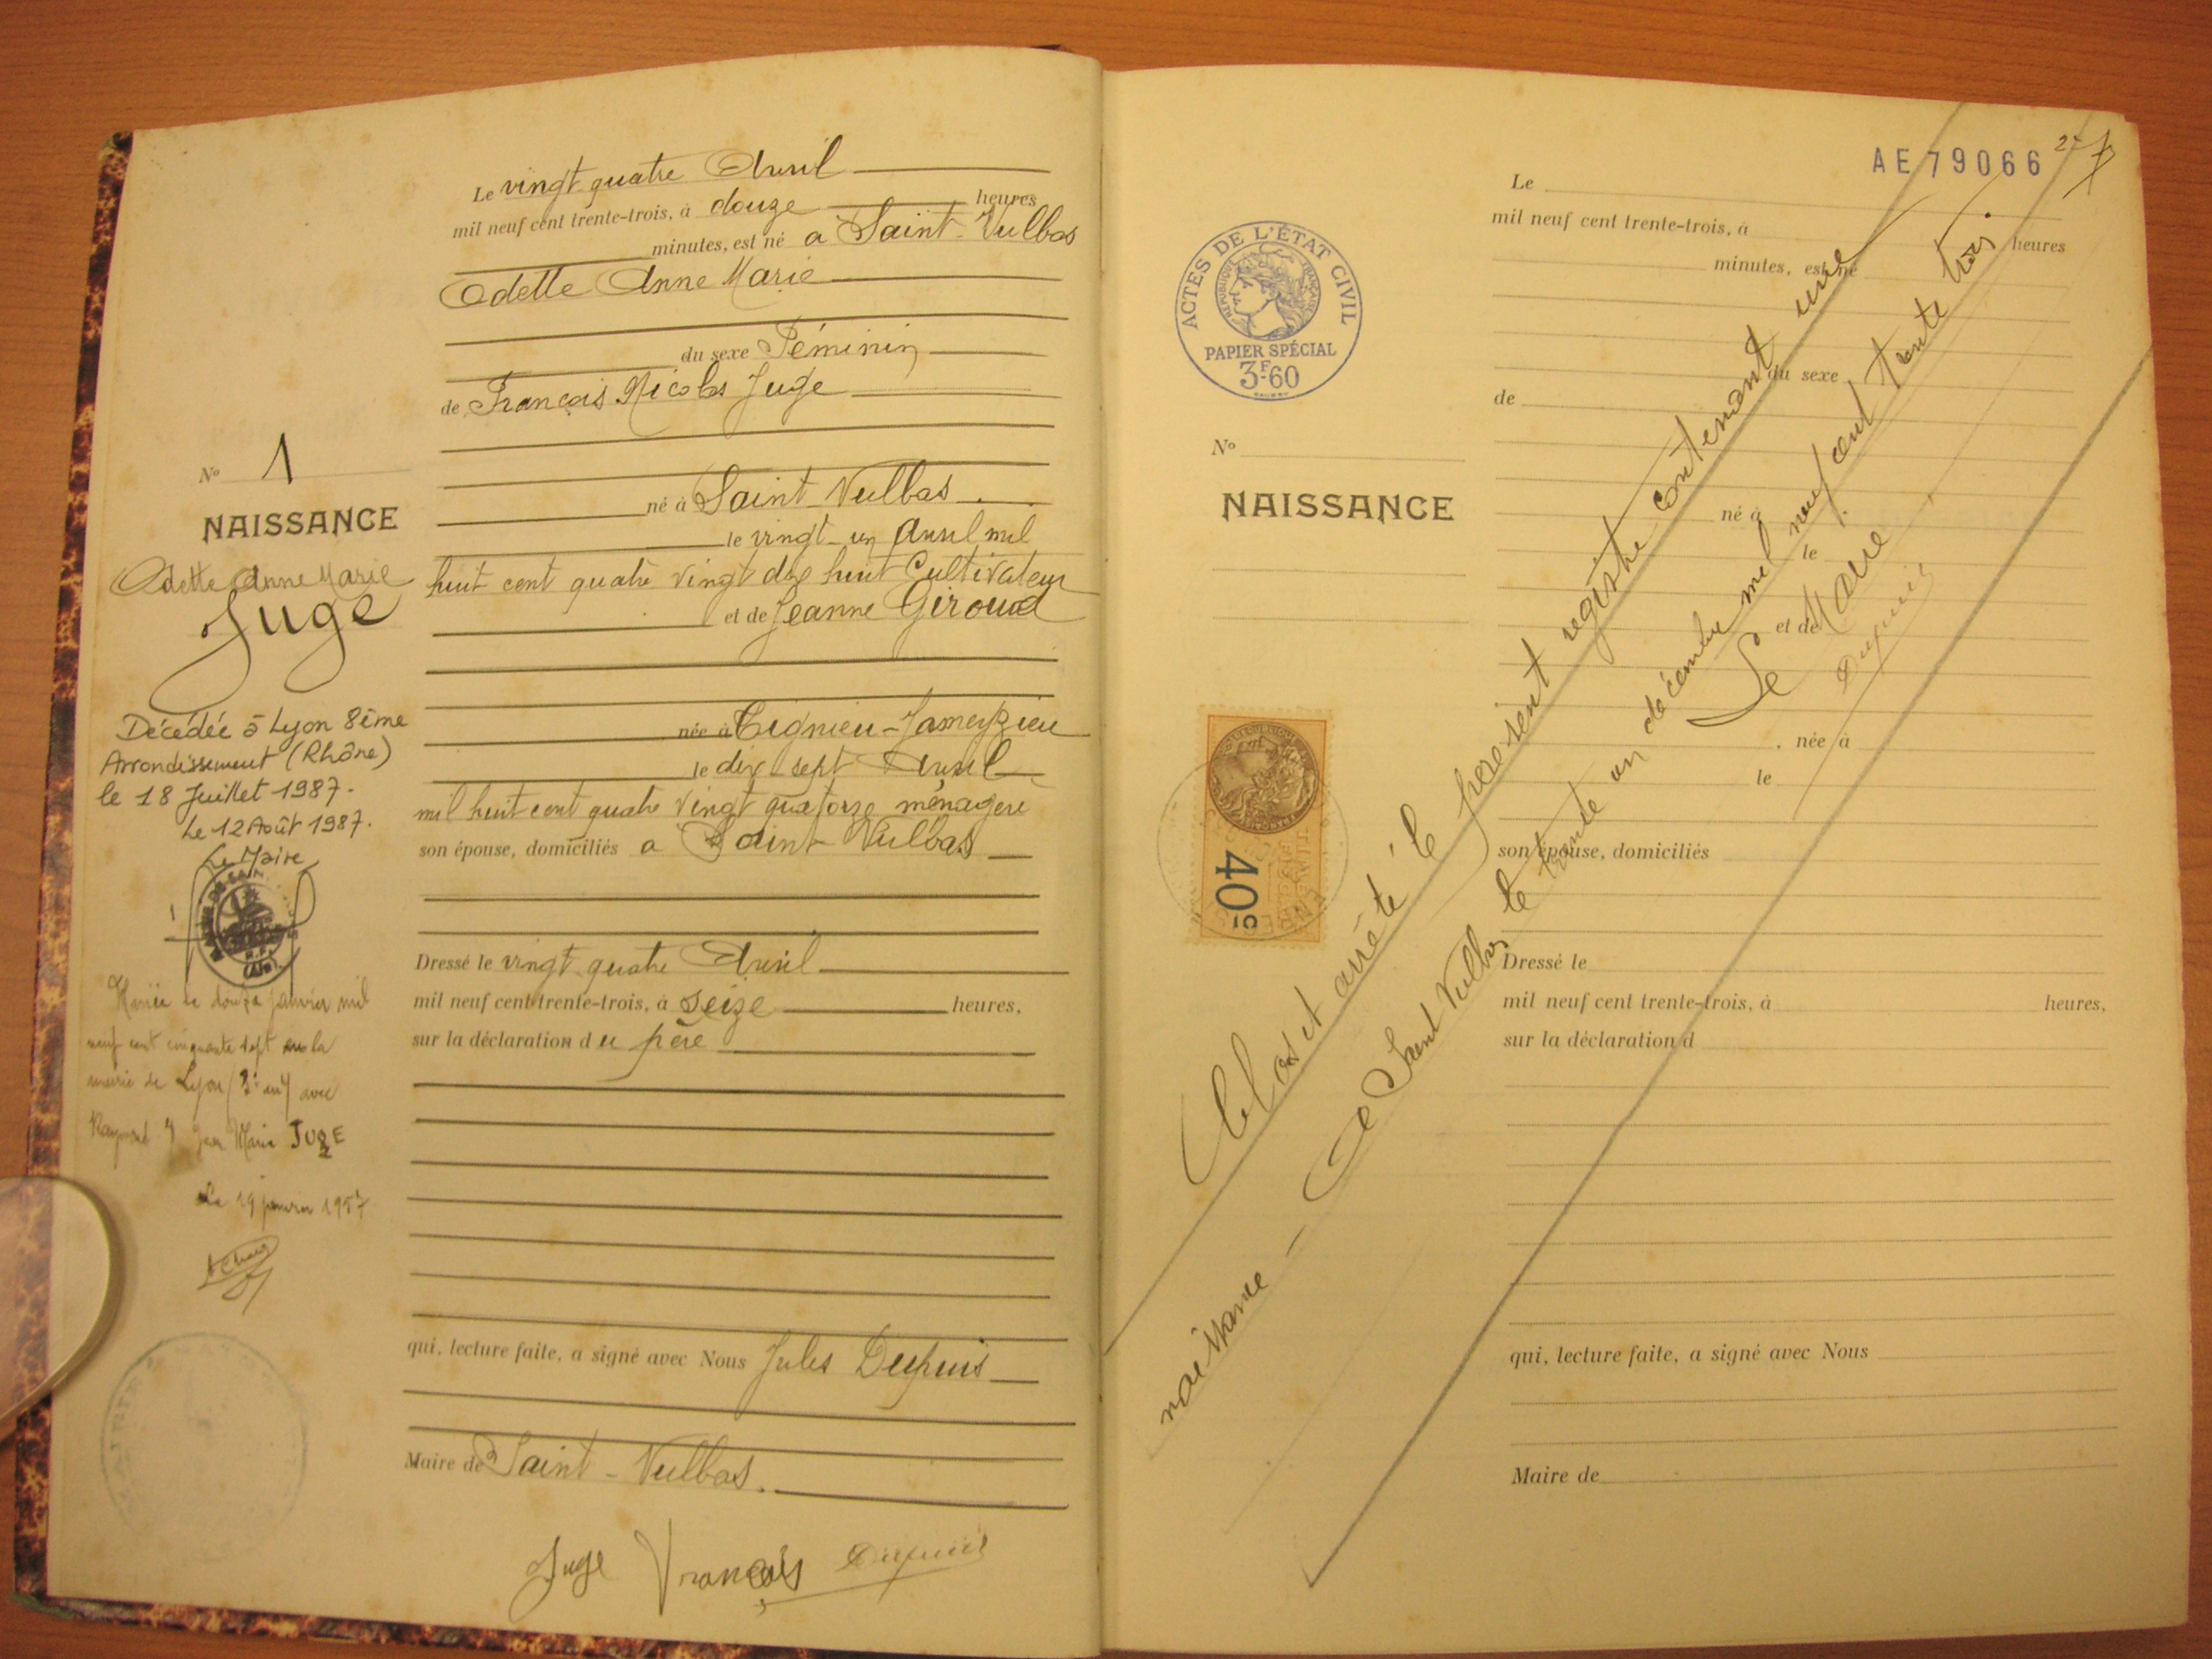 Le vingt quatre Avril
mil neuf cent trente-trois, à douze heures
minutes, est né a Saint-Vulbas
Odette Anne Marie
du sexe Féminin
de François Nicolas Juge
né à Saint-Vulbas
le vingt-un Avril mil
huit cent quatre vingt dix huit Cultivateur
et de Jeanne Giroud
née à Tignieu-Jameyzieu
le dix sept Avril
mil huit cent quatre vingt quatorze ménagère
son épouse, domiciliés a Saint Vulbas
Dressé le vingt quatre Avril
mil neuf cent trente-trois, à seize heures,
sur la déclaration du père
qui, lecture faite, a signé avec Nous Jules Dupuis
Maire de Saint-Vulbas.
Juge François Dupuis
No 1
NAISSANCE
Odette Anne Marie
Juge
Décédée à Lyon 8ème
Arrondissement (Rhône)
le 18 Juillet 1987.
Le 12 Août 1987.
Le Maire
(Ain)
Mariée le douze janvier mil
neuf cent cinquante sept à la
mairie de Lyon (3e arr) avec
Raymond Jean Marie JUGE
Le 19 janvier 1957
MAIRIE
AE79066
ACTES DE L'ÉTAT CIVIL
RÉPUBLIQUE FRANÇAISE
PAPIER SPÉCIAL
3F60
No
NAISSANCE
40c
Le
mil neuf cent trente-trois, à
heures
minutes, est né
du sexe
de
né à
le
et de
, née à
le
son épouse, domiciliés
Dressé le
mil neuf cent trente-trois, à heures,
sur la déclaration d
qui, lecture faite, a signé avec Nous
Maire de
Clos et arrêté le présent registre contenant une
naissance – A Saint Vulbas le trente un décembre mil neuf cent trente trois.
Le Maire
Dupuis